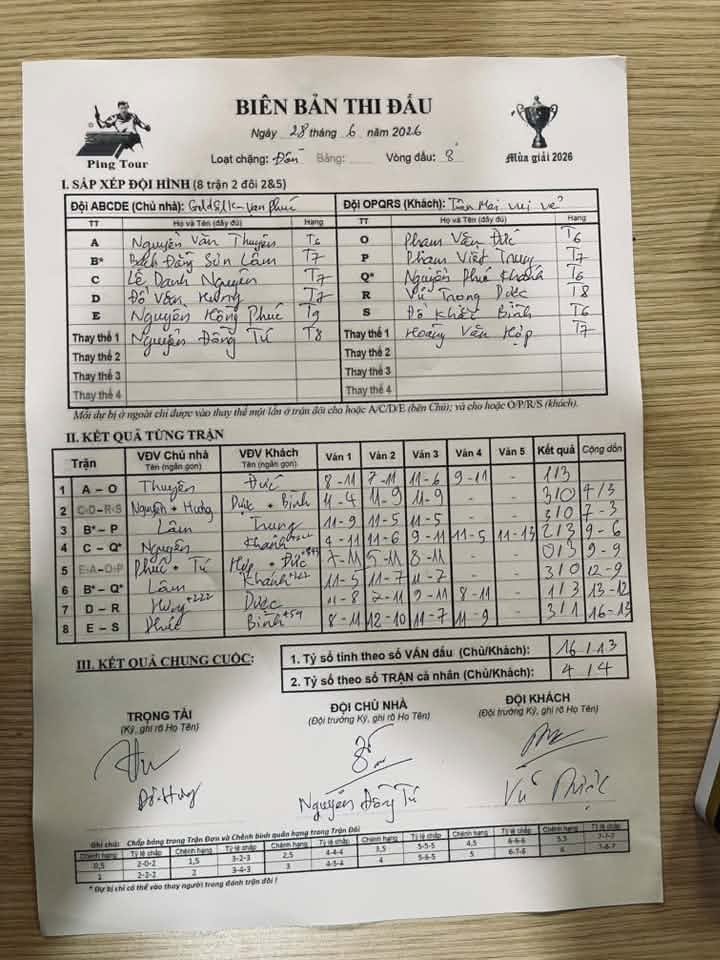 BIÊN BẢN THI ĐẤU
Ngày 28 tháng 6 năm 2026
Ping Tour
Loại chặng: Đồn Bảng: Vòng đấu: 8
Mùa giải 2026
I. SẮP XẾP ĐỘI HÌNH (8 trận 2 đôi 2&5)
Đội ABCDE (Chủ nhà): Văn Phúc Đội OPQRS (Khách): Tân Mai vui vẻ
TT Họ và Tên (đầy đủ) Hạng TT Họ và Tên (đầy đủ) Hạng
A Nguyễn Văn Thuyên T6 O Phạm Văn Đức T6
B* Bạch Đăng Sơn Lâm T7 P Phạm Việt Trung T7
C Lê Danh Nguyên T7 Q* Nguyễn Phúc Khánh T6
D Đỗ Văn Hưng T7 R Vũ Trọng Dược T8
E Nguyễn Hồng Phúc T9 S Đỗ Khắc Bình T6
Thay thế 1 Nguyễn Đồng Tú T8 Thay thế 1 Hoàng Văn Hợp T7
Thay thế 2 Thay thế 2
Thay thế 3 Thay thế 3
Thay thế 4 Thay thế 4
Mỗi dự bị ở ngoài chỉ được vào thay thế một lần ở trận đôi cho hoặc A/C/D/E (bên Chủ); và cho hoặc O/P/R/S (khách).
II. KẾT QUẢ TỪNG TRẬN
Trận VĐV Chủ nhà Tên (ngắn gọn) VĐV Khách Tên (ngắn gọn) Ván 1 Ván 2 Ván 3 Ván 4 Ván 5 Kết quả Cộng dồn
1 A – O Thuyên Đức 8-11 7-11 11-6 9-11 - 1/3
2 C-D – R-S Nguyên + Hưng Dược + Bình 11-4 11-9 11-9 - - 3/0 4/3
3 B* – P Lâm Trung 11-9 11-5 11-5 - - 3/0 7-3
4 C – Q* Nguyên Khánh 4-11 11-6 9-11 11-5 11-13 2/3 9-6
5 E-A – O-P Phúc + Tú Hợp + Đức 7-11 5-11 8-11 - - 0/3 9-9
6 B* – Q* Lâm Khánh +222 11-5 11-7 11-7 - - 3/0 12-9
7 D – R Hưng +222 Dược 11-8 7-11 9-11 8-11 - 1/3 13-12
8 E – S Phúc Bình 8-11 12-10 11-7 11-9 - 3/1 16-13
III. KẾT QUẢ CHUNG CUỘC:
1. Tỷ số tính theo số VÁN đấu (Chủ/Khách): 16/13
2. Tỷ số theo số TRẬN cá nhân (Chủ/Khách): 4/4
TRỌNG TÀI ĐỘI CHỦ NHÀ ĐỘI KHÁCH
(Ký, ghi rõ Họ Tên) (Đội trưởng Ký, ghi rõ Họ Tên) (Đội trưởng Ký, ghi rõ Họ Tên)
Đỗ Hưng Nguyễn Đồng Tú Vũ
Ghi chú: Chấp bóng trong Trận Đơn và Chênh bình quân hạng trong Trận Đôi
Chênh hạng Tỷ lệ chấp Chênh hạng Tỷ lệ chấp Chênh hạng Tỷ lệ chấp Chênh hạng Tỷ lệ chấp Chênh hạng Tỷ lệ chấp Chênh hạng Tỷ lệ chấp
0,5 2-0-2 1,5 3-2-3 2,5 4-4-4 3,5 5-5-5 4,5 6-6-6 5,5 7-7-7
1 2-2-2 2 3-4-3 3 4-5-4 4 5-6-5 5 6-7-6 6
* Dự bị chỉ có thể vào thay người trong đánh trận đôi !